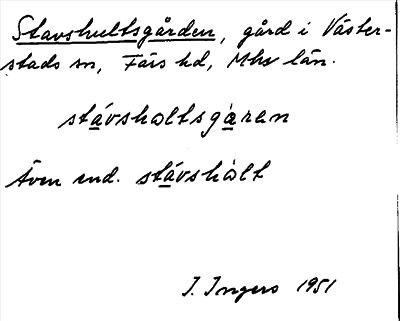 Stavshultsgården, gård i Väster-
stads sn, Färs hd, Mhs län.
stávshꝏltsgàren
Även end. stávshꝏ̀lt
I. Ingers 1951